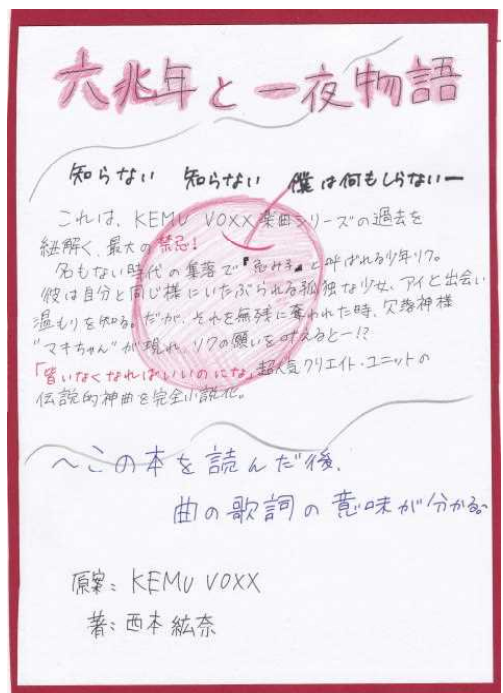 六兆年と一夜物語
知らない 知らない 僕は何もしらないー
これは、KEMU VOXX楽曲シリーズの過去を
紐解く、最大の禁忌!
名もない時代の集落で『忌み子』と呼ばれる少年リク。
彼は自分と同じ様にいたぶられる孤独な少女、アイと出会い
温もりを知る。だが、それを無残に奪われた時、欠落神様
"マキちゃん"が現れ、リクの願いを叶えるとー!?
「皆いなくなればいいのにな」超人気クリエイト・ユニットの
伝説的神曲を完全小説化。
〜この本を読んだ後、
曲の歌詞の意味が分かる。
原案: KEMU VOXX
著: 西本紘奈